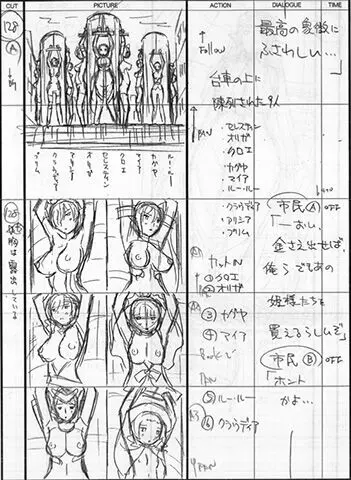 CUT
PICTURE
ACTION
DIALOGUE
TIME
128
A
プリム
クラウディア
アリシア
オリガ
セレスティン
クロエ
マイア
カグヤ
ルー・ルー
Follow
台車の上に
陳列された9人
PAN
・セレスティン
・オリガ
・クロエ
・カグヤ
・マイア
・ルー・ルー
・クラウディア
・アリシア
・プリム
最高の象徴に
ふさわしい…
」
胸は露出している
カットIN
①クロエ
②オリガ
③カグヤ
④マイア
Bookで
PAN
⑤ルー・ルー
⑥クラウディア
PAN
市民Ⓐ OFF
「―おい、
金さえ出せば、
俺らでもあの
姫様たちを
買えるらしいぞ」
市民Ⓑ OFF
「ホント
かよ…